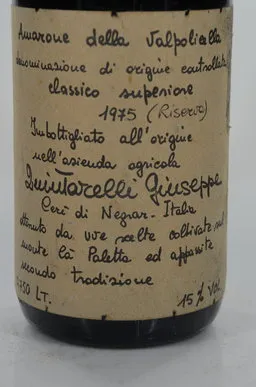 Amarone della Valpolicella
denominazione di origine controllata
classico superiore
1975 (Riserva)
Imbottigliato all'origine
nell'azienda agricola
Quintarelli Giuseppe
Cerè di Negrar - Italia
ottenuto da uve scelte coltivate sul
monte Cà Paletta ed appassite
secondo tradizione
750 LT. 15% Vol.